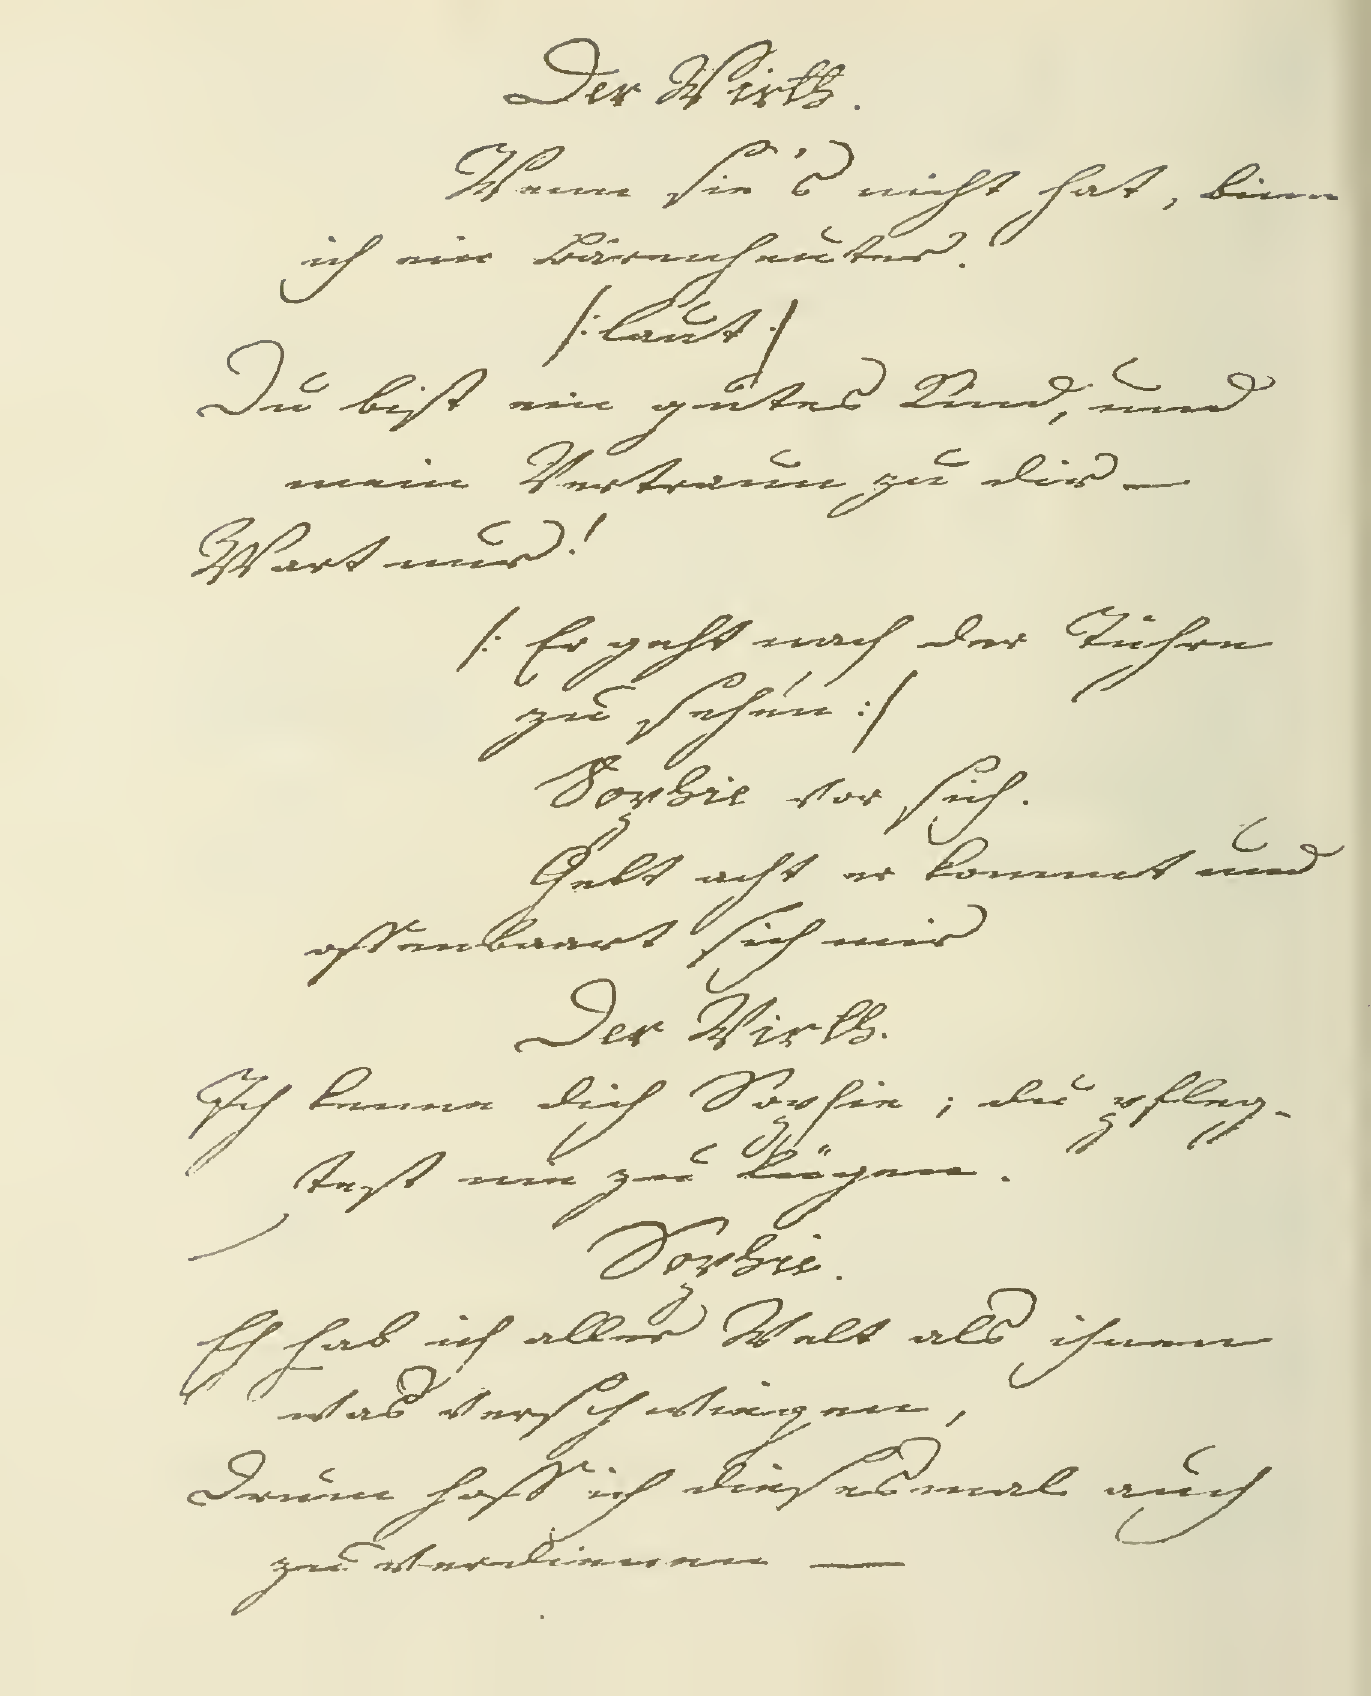 Der Wirth.
Wenn sie's nicht hat, binn
ich ein Bärenheuter.
/: laut :/
Du bist ein gutes Kind, und
mein Vertraun zu dir —
Wart nur!
/: Er geht nach der Tühre
zu sehen :/
Sophie vor sich.
Gebt acht er kommt und
offenbaart sich mir
Der Wirth.
Ich kenne dich Sophie; du pfleg-
test nie zu lügen.
Sophie.
Eh hab ich aller Welt als ihnen
was verschwiegen,
Drum hoff ich diesesmal auch
zu verdienen —